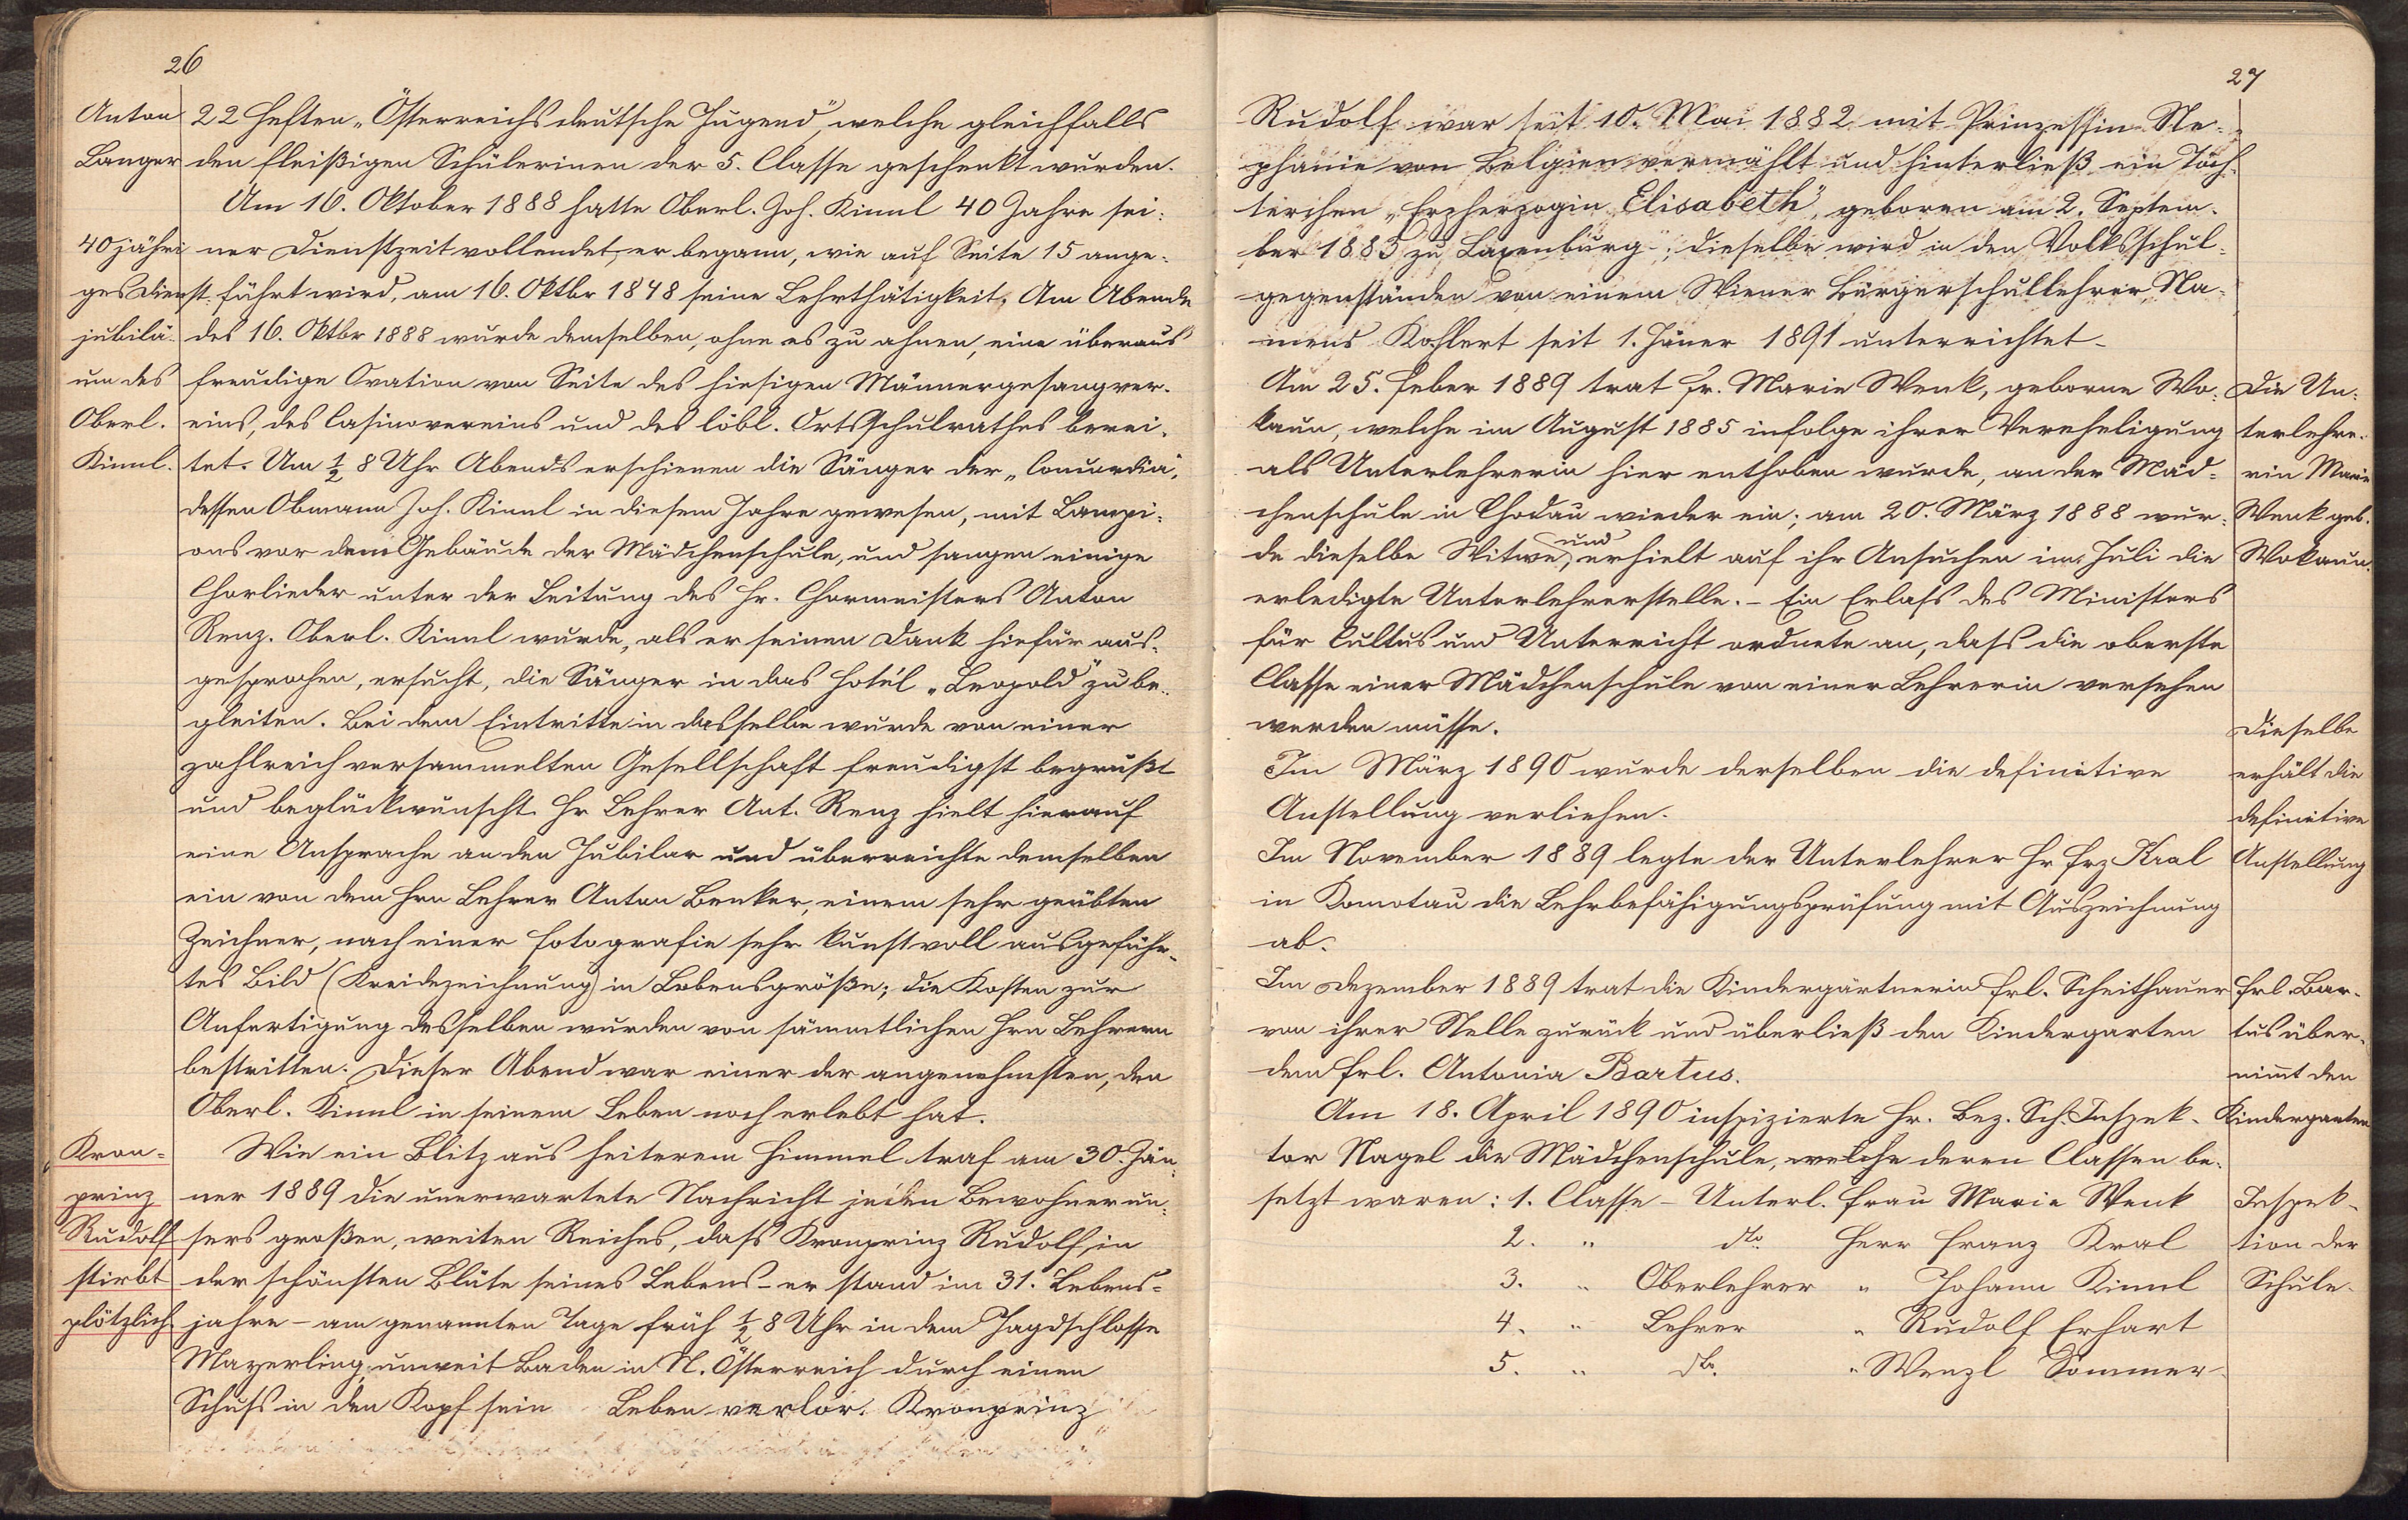 26
Anton
Langer
40jähri
ges Dienst
jubilä-
um des
Oberl.
Kinnl.
22 Heften „Österreichs deutsche Jugend", welche gleichfalls
den fleißigen Schülerinen der 5. Classe geschenkt wurden.
Am 16. Oktober 1888 hatte Oberl. Joh. Kinnl 40 Jahre sei-
ner Dienstzeit vollendet, er begann, wie auf Seite 15 ange-
führt wird, am 16. Oktbr 1848 seine Lehrthätigkeit. Am Abende
des 16. Oktbr 1888 wurde demselben, ohne es zu ahnen, eine überaus
freudige Ovation von Seite des hiesigen Männergesangver-
eins, des Casinovereins und des löbl. Ortsschulrathes berei-
tet. Um ½ 8 Uhr Abends erschienen die Sänger der „Concordia",
dessen Obmann Joh. Kinnl in diesem Jahre gewesen, mit Lampi-
ons vor dem Gebäude der Mädchenschule, und sangen einige
Chorlieder unter der Leitung des Hr. Chormeisters Anton
Renz. Oberl. Kinnl wurde, als er seinen Dank hiefür aus-
gesprochen, ersucht, die Sänger in das Hotél „Leopold" zu be-
gleiten. Bei dem Eintritte in dasselbe wurde von einer
zahlreich versammelten Gesellschaft freudigst begrüßt
und beglückwünscht. Hr Lehrer Ant. Renz hielt hierauf
eine Ansprache an den Jubilar und überreichte demselben
ein von dem Hrn Lehrer Anton Benker, einem sehr geübten
Zeichner, nach einer Fotografie sehr kunstvoll ausgeführ-
tes Bild (Kreidezeichnung) in Lebensgröße; die Kosten zur
Anfertigung desselben wurden von sämmtlichen Hrn Lehrern
bestritten. Dieser Abend war einer der angenehmsten, den
Oberl. Kinnl in seinem Leben noch erlebt hat.
Kron-
prinz
Rudolf
stirbt
plötzlich.
Wie ein Blitz aus heiterem Himmel traf am 30. Jän-
ner 1889 die unerwartete Nachricht jeden Bewohner un-
sers großen, weiten Reiches, dass Kronprinz Rudolf, in
der schönsten Blüte seines Lebens - er stand im 31. Lebens-
jahre - am genannten Tage früh ½ 8 Uhr in dem Jagdschlosse
Mayerling, unweit Baden in N. Österreich durch einen
Schuss in den Kopf sein Leben verlor. Kronprinz
27
Rudolf war seit 10. Mai 1882 mit Prinzessin Ste-
phanie von Belgien vermählt und hinterließ ein Töch-
terchen „Erzherzogin Elisabeth", geboren am 2. Septem-
ber 1883 zu Laxenburg"; dieselbe wird in den Volksschul-
gegenständen von einem Wiener Bürgerschullehrer Na-
mens Kohlert seit 1. Jäner 1891 unterrichtet.
Am 25. Feber 1889 trat Fr. Marie Wenk, geborne Wo-
kaun, welche im August 1885 infolge ihrer Vereheligung
als Unterlehrerin hier enthoben wurde, an der Mäd-
chenschule in Chodau wieder ein; am 20. März 1888 wur-
de dieselbe Witwe, und erhielt auf ihr Ansuchen im Juli die
erledigte Unterlehrerstelle. - Ein Erlass des Ministers
für Cultus und Unterricht ordnete an, dass die oberste
Classe einer Mädchenschule von einer Lehrerin versehen
werden müsse.
Im März 1890 wurde derselben die definitive
Anstellung verliehen.
Im November 1889 legte der Unterlehrer Hr Frz Kral
in Komotau die Lehrbefähigungsprüfung mit Auszeichnung
ab.
Im Dezember 1889 trat die Kindergärtnerin Frl. Scheithauer
von ihrer Stelle zurück und überließ den Kindergarten
dem Frl. Antonia Bartus.
Am 18. April 1890 inspizierte Hr. Bez. Sch. Inspek-
tor Nagel die Mädchenschule, welche deren Classen be-
setzt waren: 1. Classe - Unterl. Frau Marie Wenk
2. " dto. Herr Franz Kral
3. " Oberlehrer " Johann Kinnl
4. " Lehrer " Rudolf Erhart
5. " dto. " Wenzl Sommer
Die Un-
terlehre-
rin Marie
Wenk geb.
Wokaun.
Dieselbe
erhält die
definitive
Anstellung
Frl. Bar-
tus über-
nimt den
Kindergarten
Inspek-
tion der
Schule.